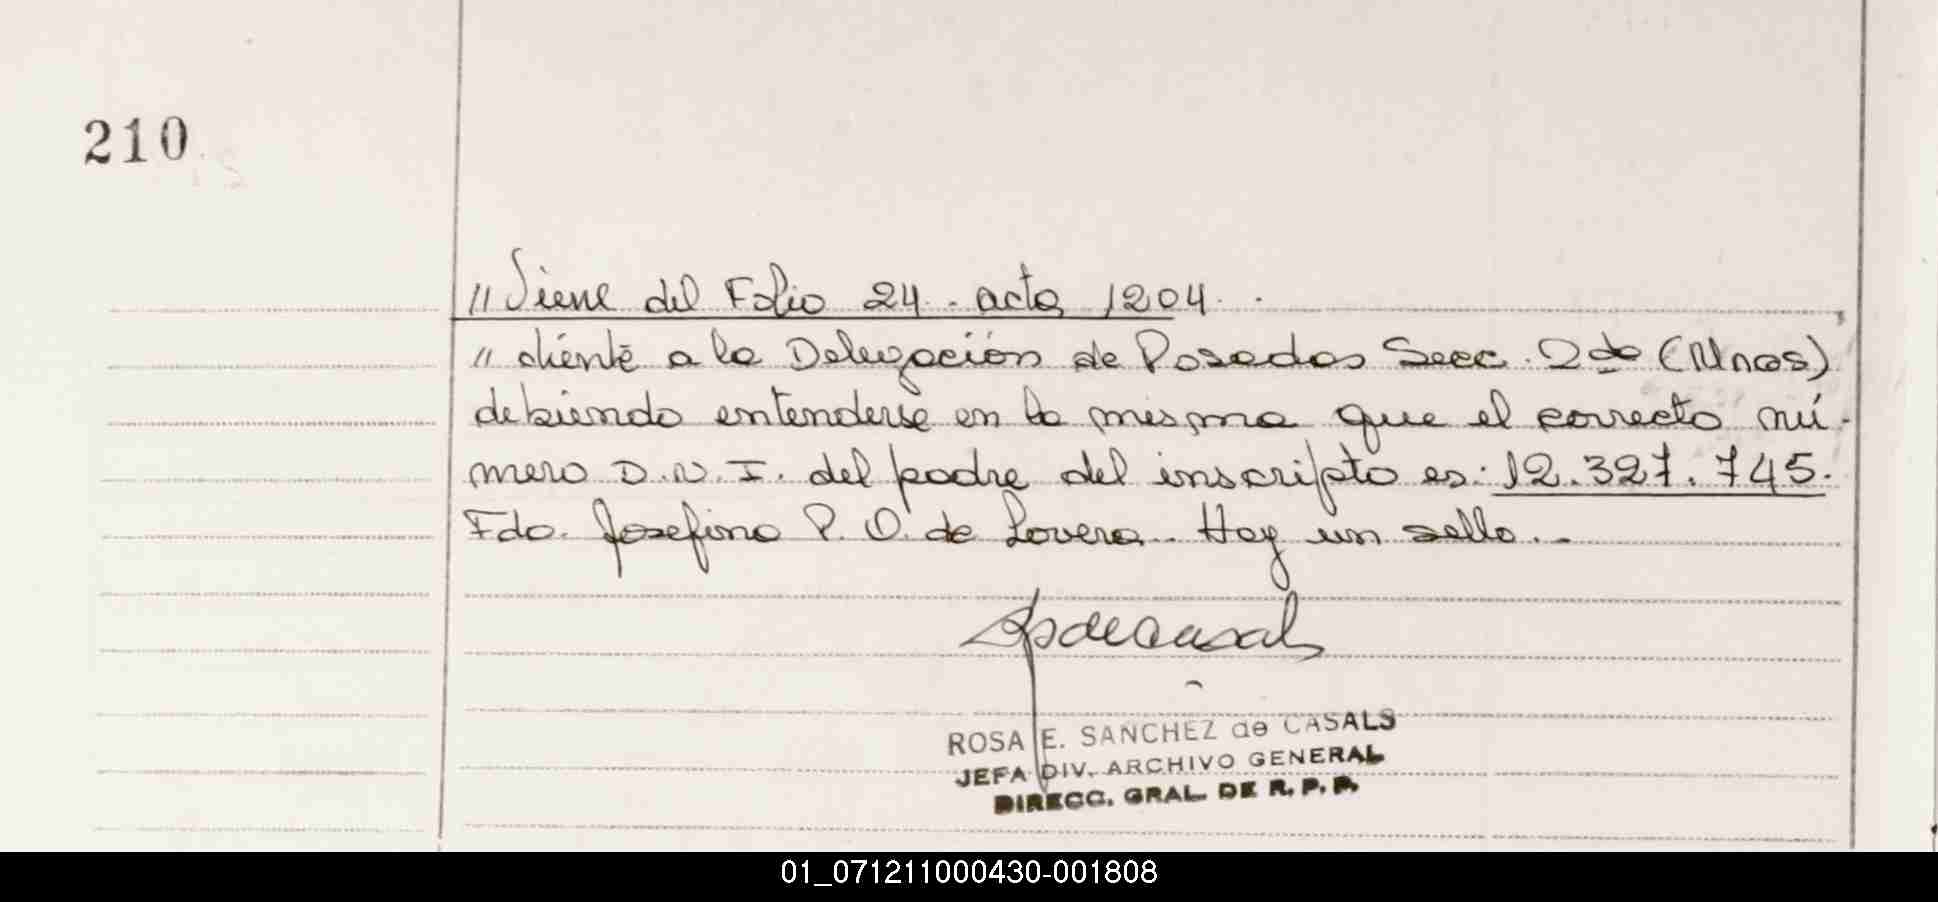 210
" Viene del Folio 24. acta 1204.
" diente a la Delegación de Posadas Secc. 2da (Mnes)
debiendo entenderse en la misma que el correcto nú-
mero D.N.I. del padre del inscripto es: 12.327.745.
Fdo. Josefina P. O. de Lovera. Hay un sello..
ROSA E. SANCHEZ de CASALS
JEFA DIV. ARCHIVO GENERAL
DIRECC. GRAL. DE R. P. P.
01_071211000430-001808